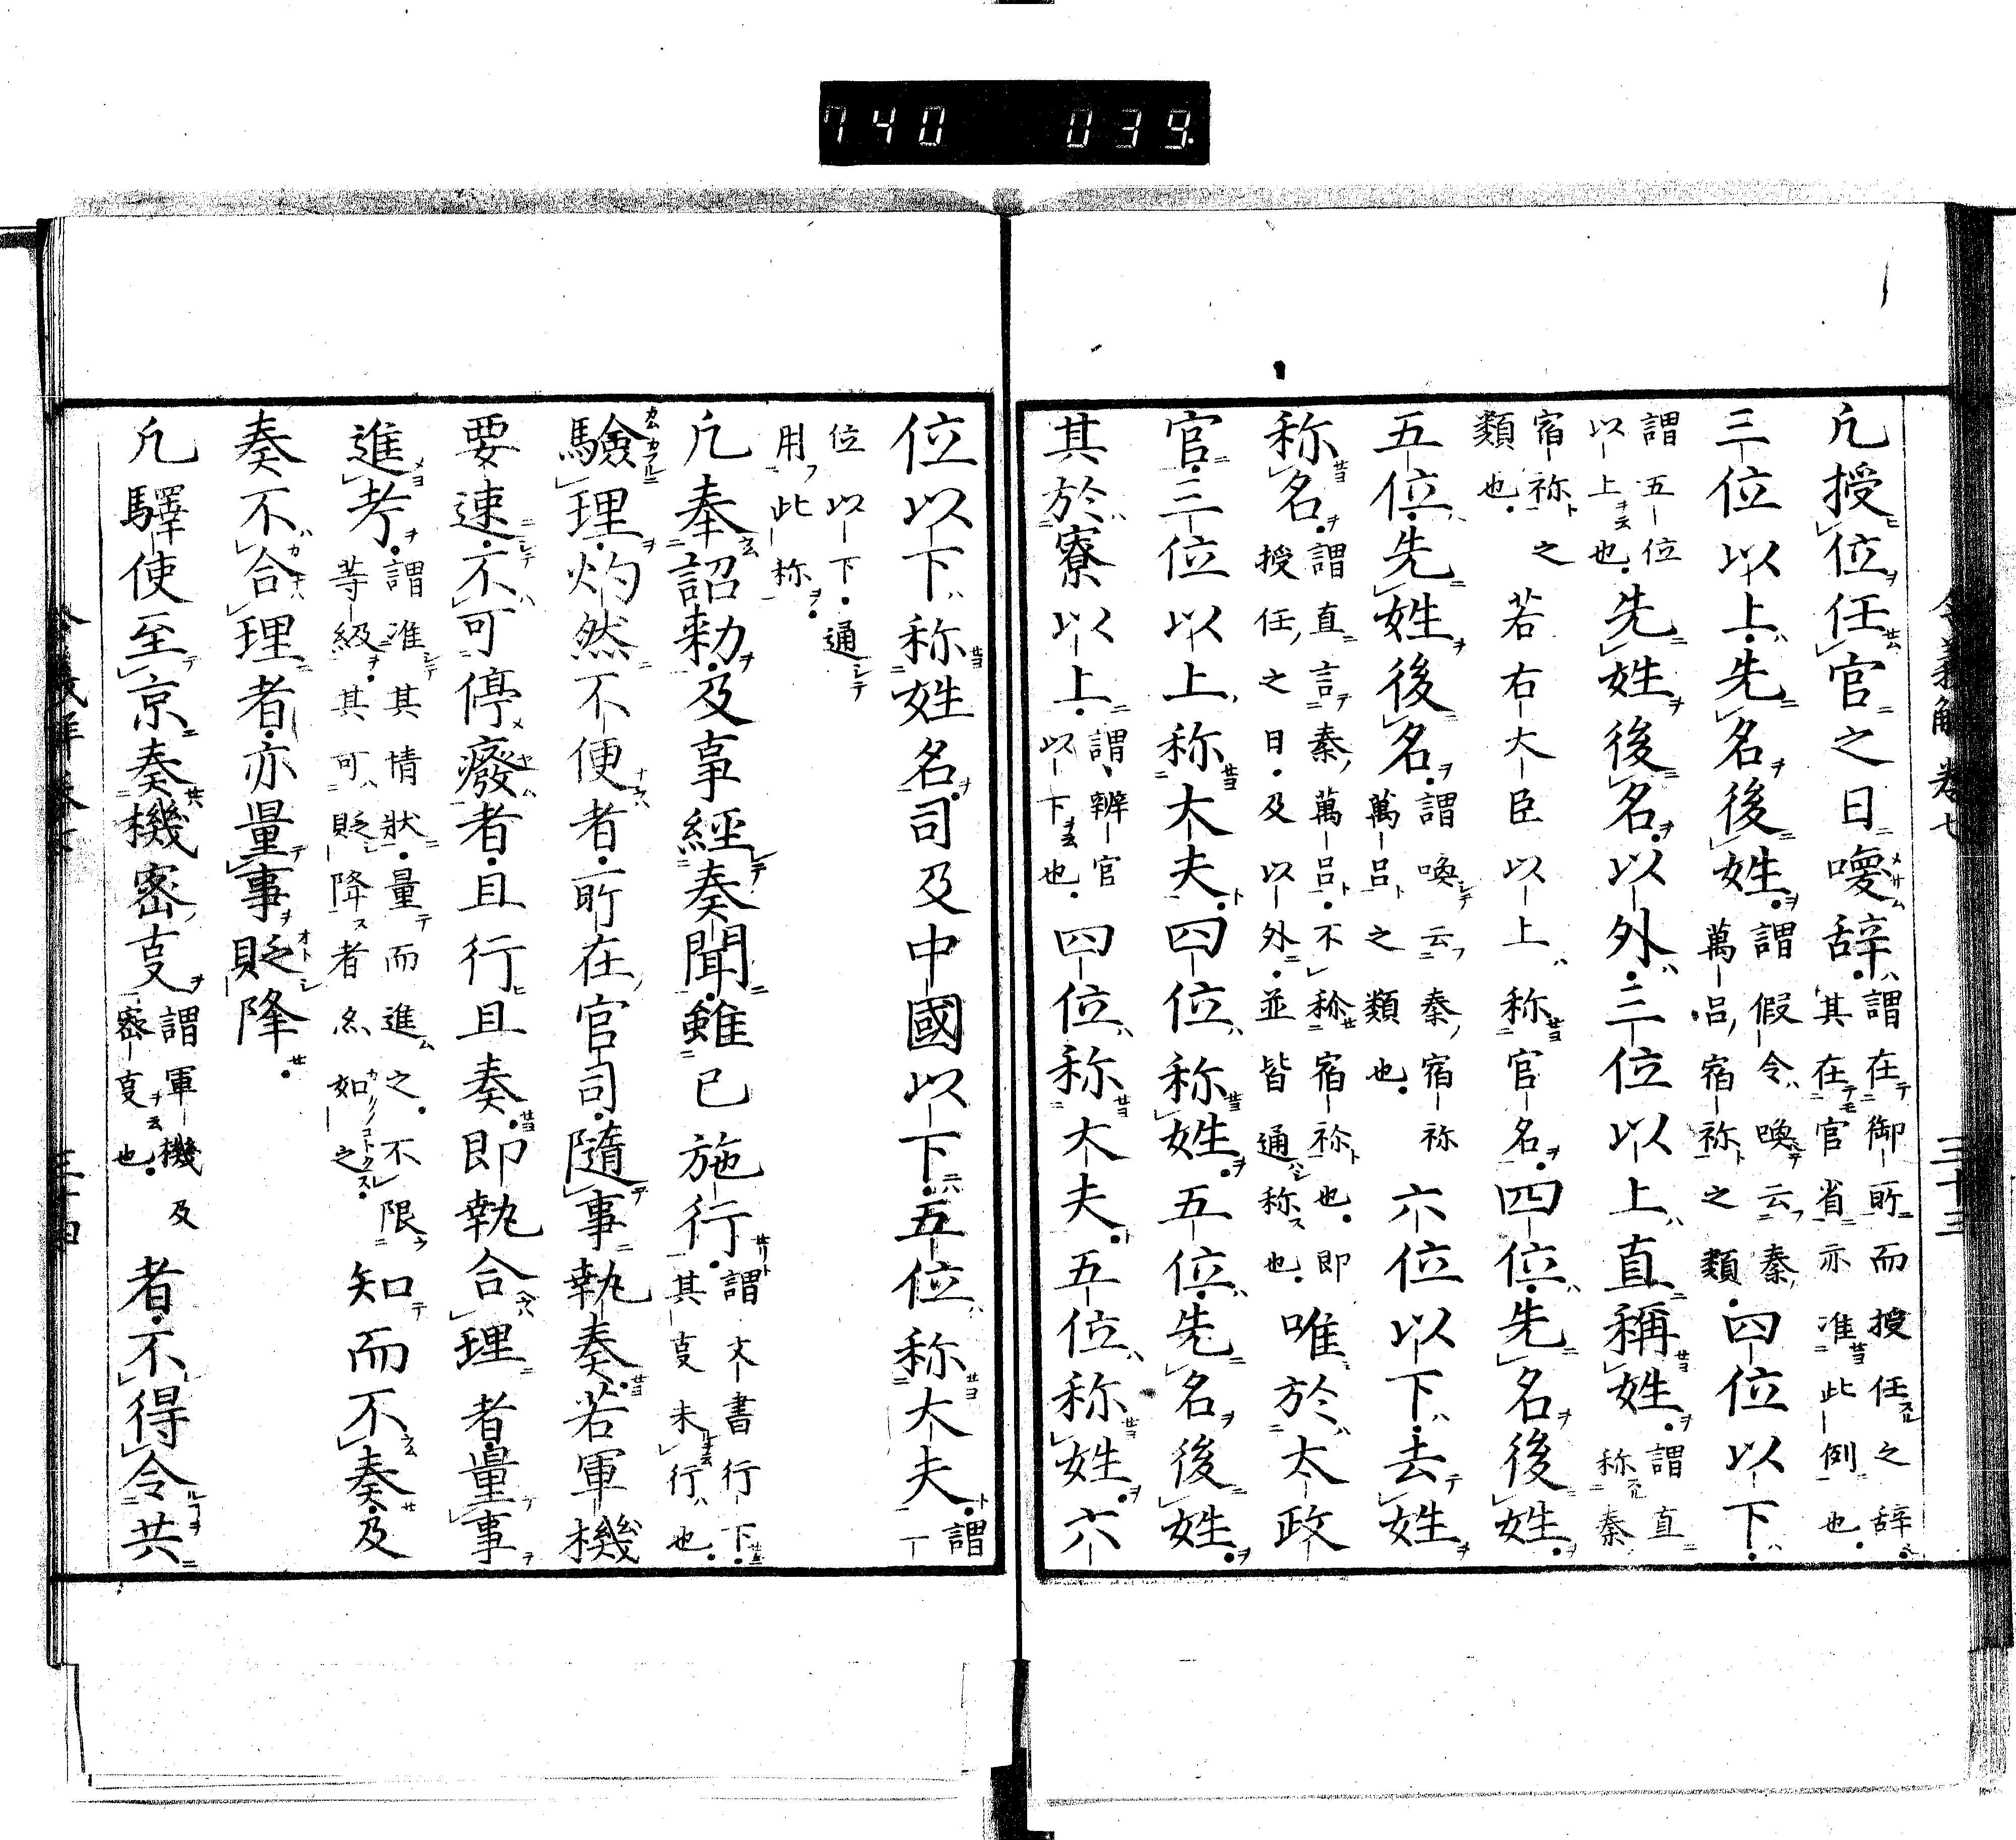 740 039
凢授位任官之日喚辞謂在御所而授任之辞
其在官省亦准此例也
三位以上先名後姓謂假令喚云秦
萬呂宿祢之類四位以下
謂五位
以上云也先姓後名以外三位以上直稱姓謂直
称秦
宿祢之
類也若右大臣以上称官名四位先名後姓
五位先姓後名謂喚云秦宿祢
萬呂之類也六位以下去姓
称名謂直言秦萬呂不称宿祢也即
授任之日及以外並皆通称也唯於太政
官三位以上称大夫四位称姓五位先名後姓
其於寮以上謂辨官
以下云也四位称大夫五位称姓六
位以下称姓名司及中國以下五位称大夫謂一
位以下通
用此称
凢奉詔勅及事経奏聞雖已施行謂文書行下
其㕝未行也
驗理灼然不便者所在官司隨事執奏若軍機
要速不可停癈者且行且奏即執合理者量事
進考謂准其情状量而進之不限
等級其可貶降者亦如之知而不奏及
奏不合理者亦量事貶降
凢驛使至京奏機密㕝謂軍機及
密㕝云也者不得令共